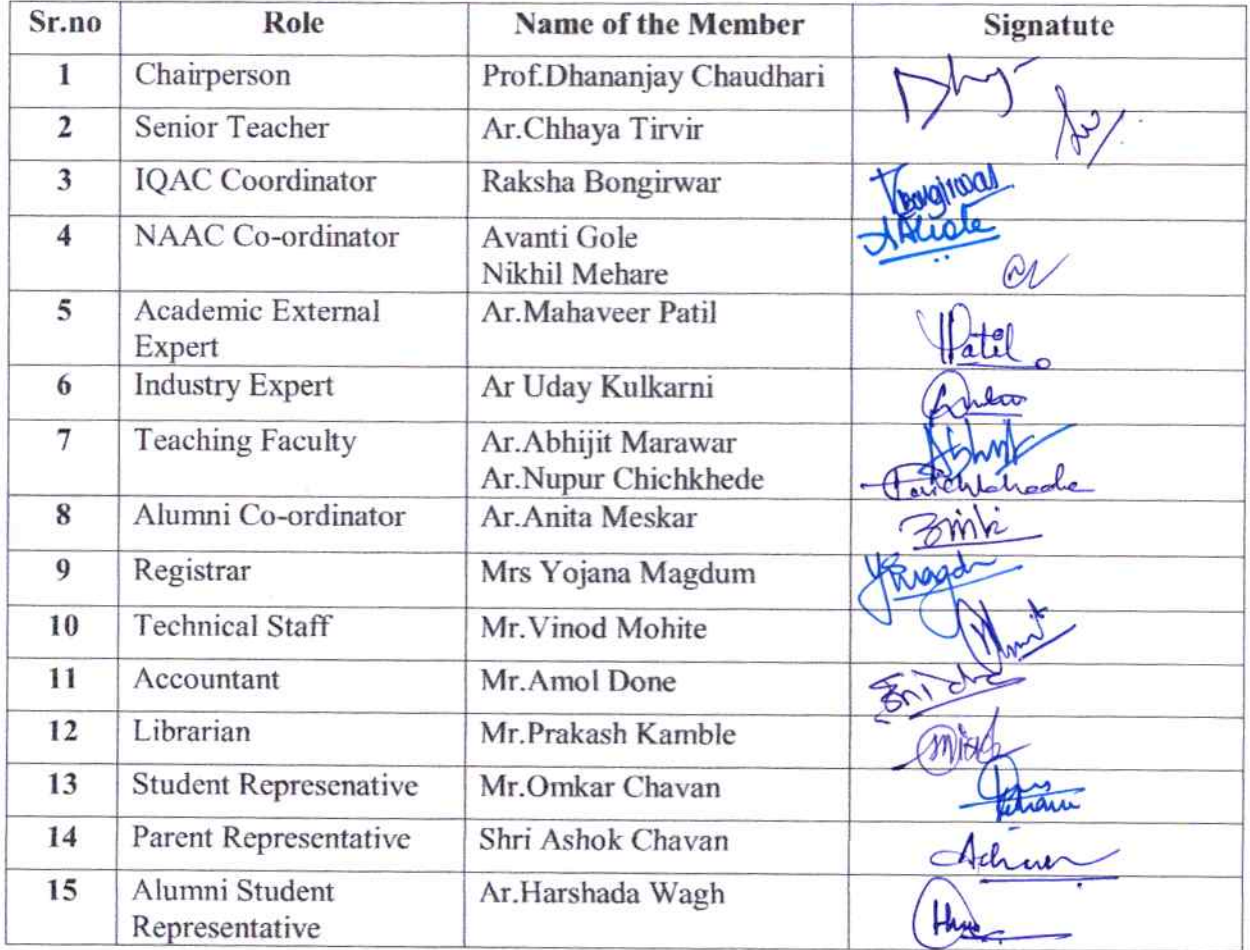 Sr.no Role Name of the Member Signatute
1 Chairperson Prof.Dhananjay Chaudhari
2 Senior Teacher Ar.Chhaya Tirvir
3 IQAC Coordinator Raksha Bongirwar
4 NAAC Co-ordinator Avanti Gole
Nikhil Mehare
5 Academic External Ar.Mahaveer Patil
Expert Patil
6 Industry Expert Ar Uday Kulkarni
7 Teaching Faculty Ar.Abhijit Marawar
Ar.Nupur Chichkhede
8 Alumni Co-ordinator Ar.Anita Meskar
9 Registrar Mrs Yojana Magdum
10 Technical Staff Mr.Vinod Mohite
11 Accountant Mr.Amol Done
12 Librarian Mr.Prakash Kamble
13 Student Represenative Mr.Omkar Chavan
14 Parent Representative Shri Ashok Chavan
15 Alumni Student Ar.Harshada Wagh
Representative